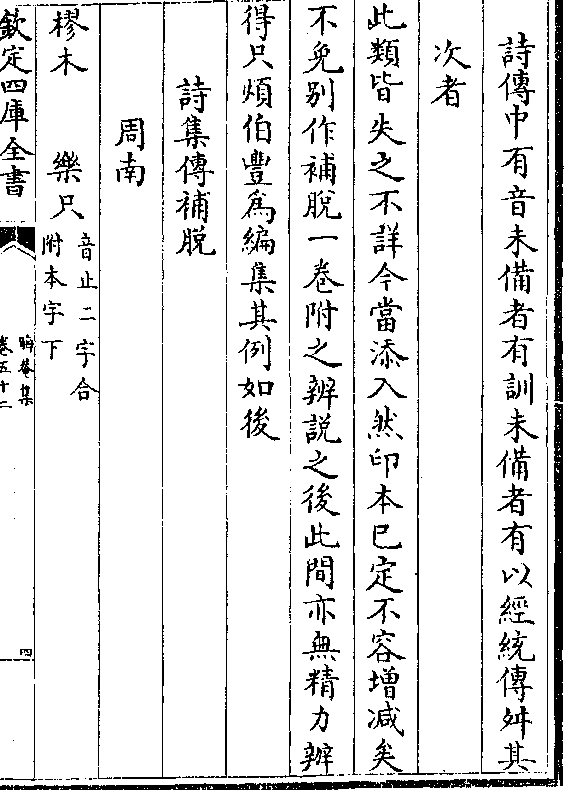 詩傳中有音未備者有訓未備者有以經統傳舛其
次者
此類皆失之不詳今當添入然印本已定不容增减矣
不免别作補脫一卷附之辨説之後此間亦無精力辦
得只煩伯豐爲編集其例如後
詩集傳補脱
周南
樛木　樂只音止二字合
附本字下
欽定四庫全書
晦菴集
卷五十二
四